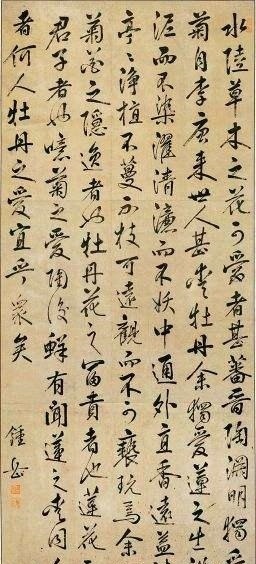 水陸草木之花可愛者甚蕃晉陶淵明獨愛
菊自李唐來世人甚愛牡丹余獨愛蓮之出
泥而不染濯清漣而不妖中通外直香遠益
亭々淨植不蔓不枝可遠觀而不可褻玩焉余
菊花之隱逸者也牡丹花之富貴者也蓮花
君子者也噫菊之愛陶後鮮有聞蓮之愛同
者何人牡丹之愛宜乎眾矣
鍾岳